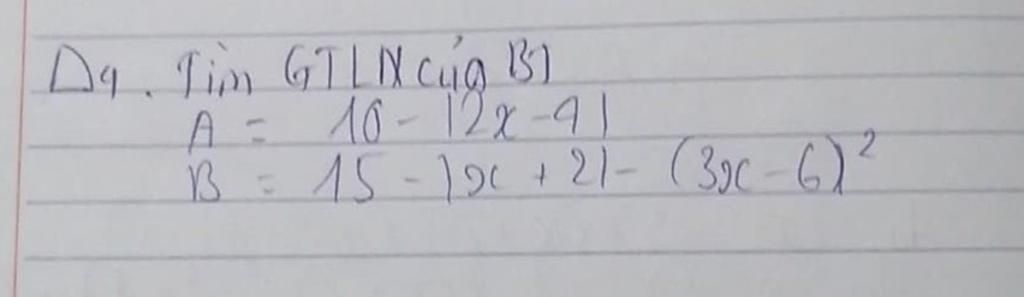 D9. Tìm GTLN của BT
A = 10 - |2x - 9|
B = 15 - |x + 2| - (3x - 6)²